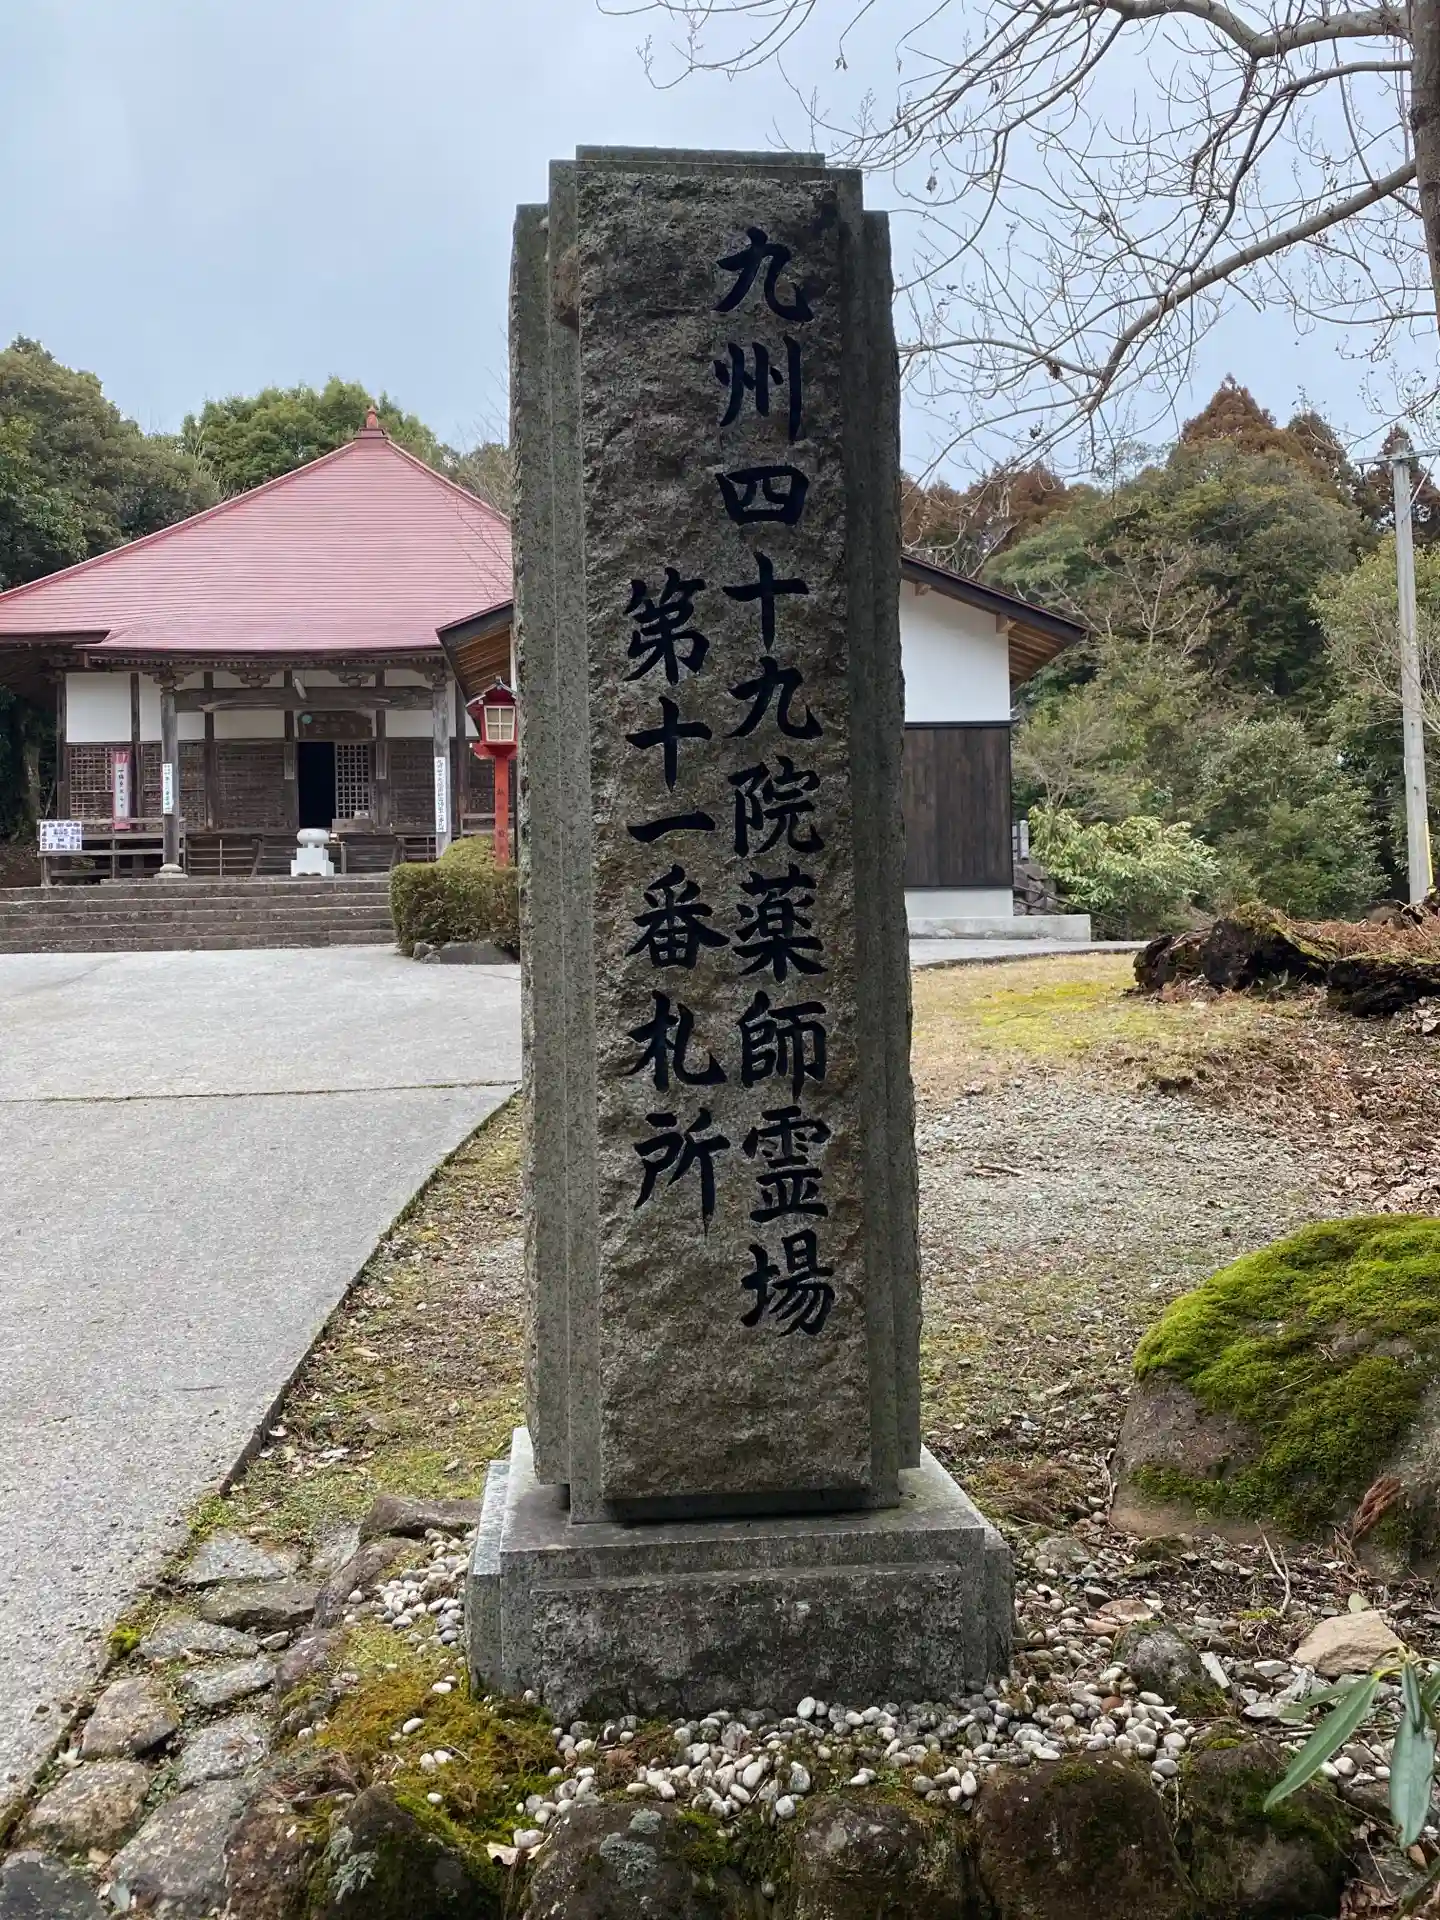 九州四十九院薬師霊場
第十一番札所